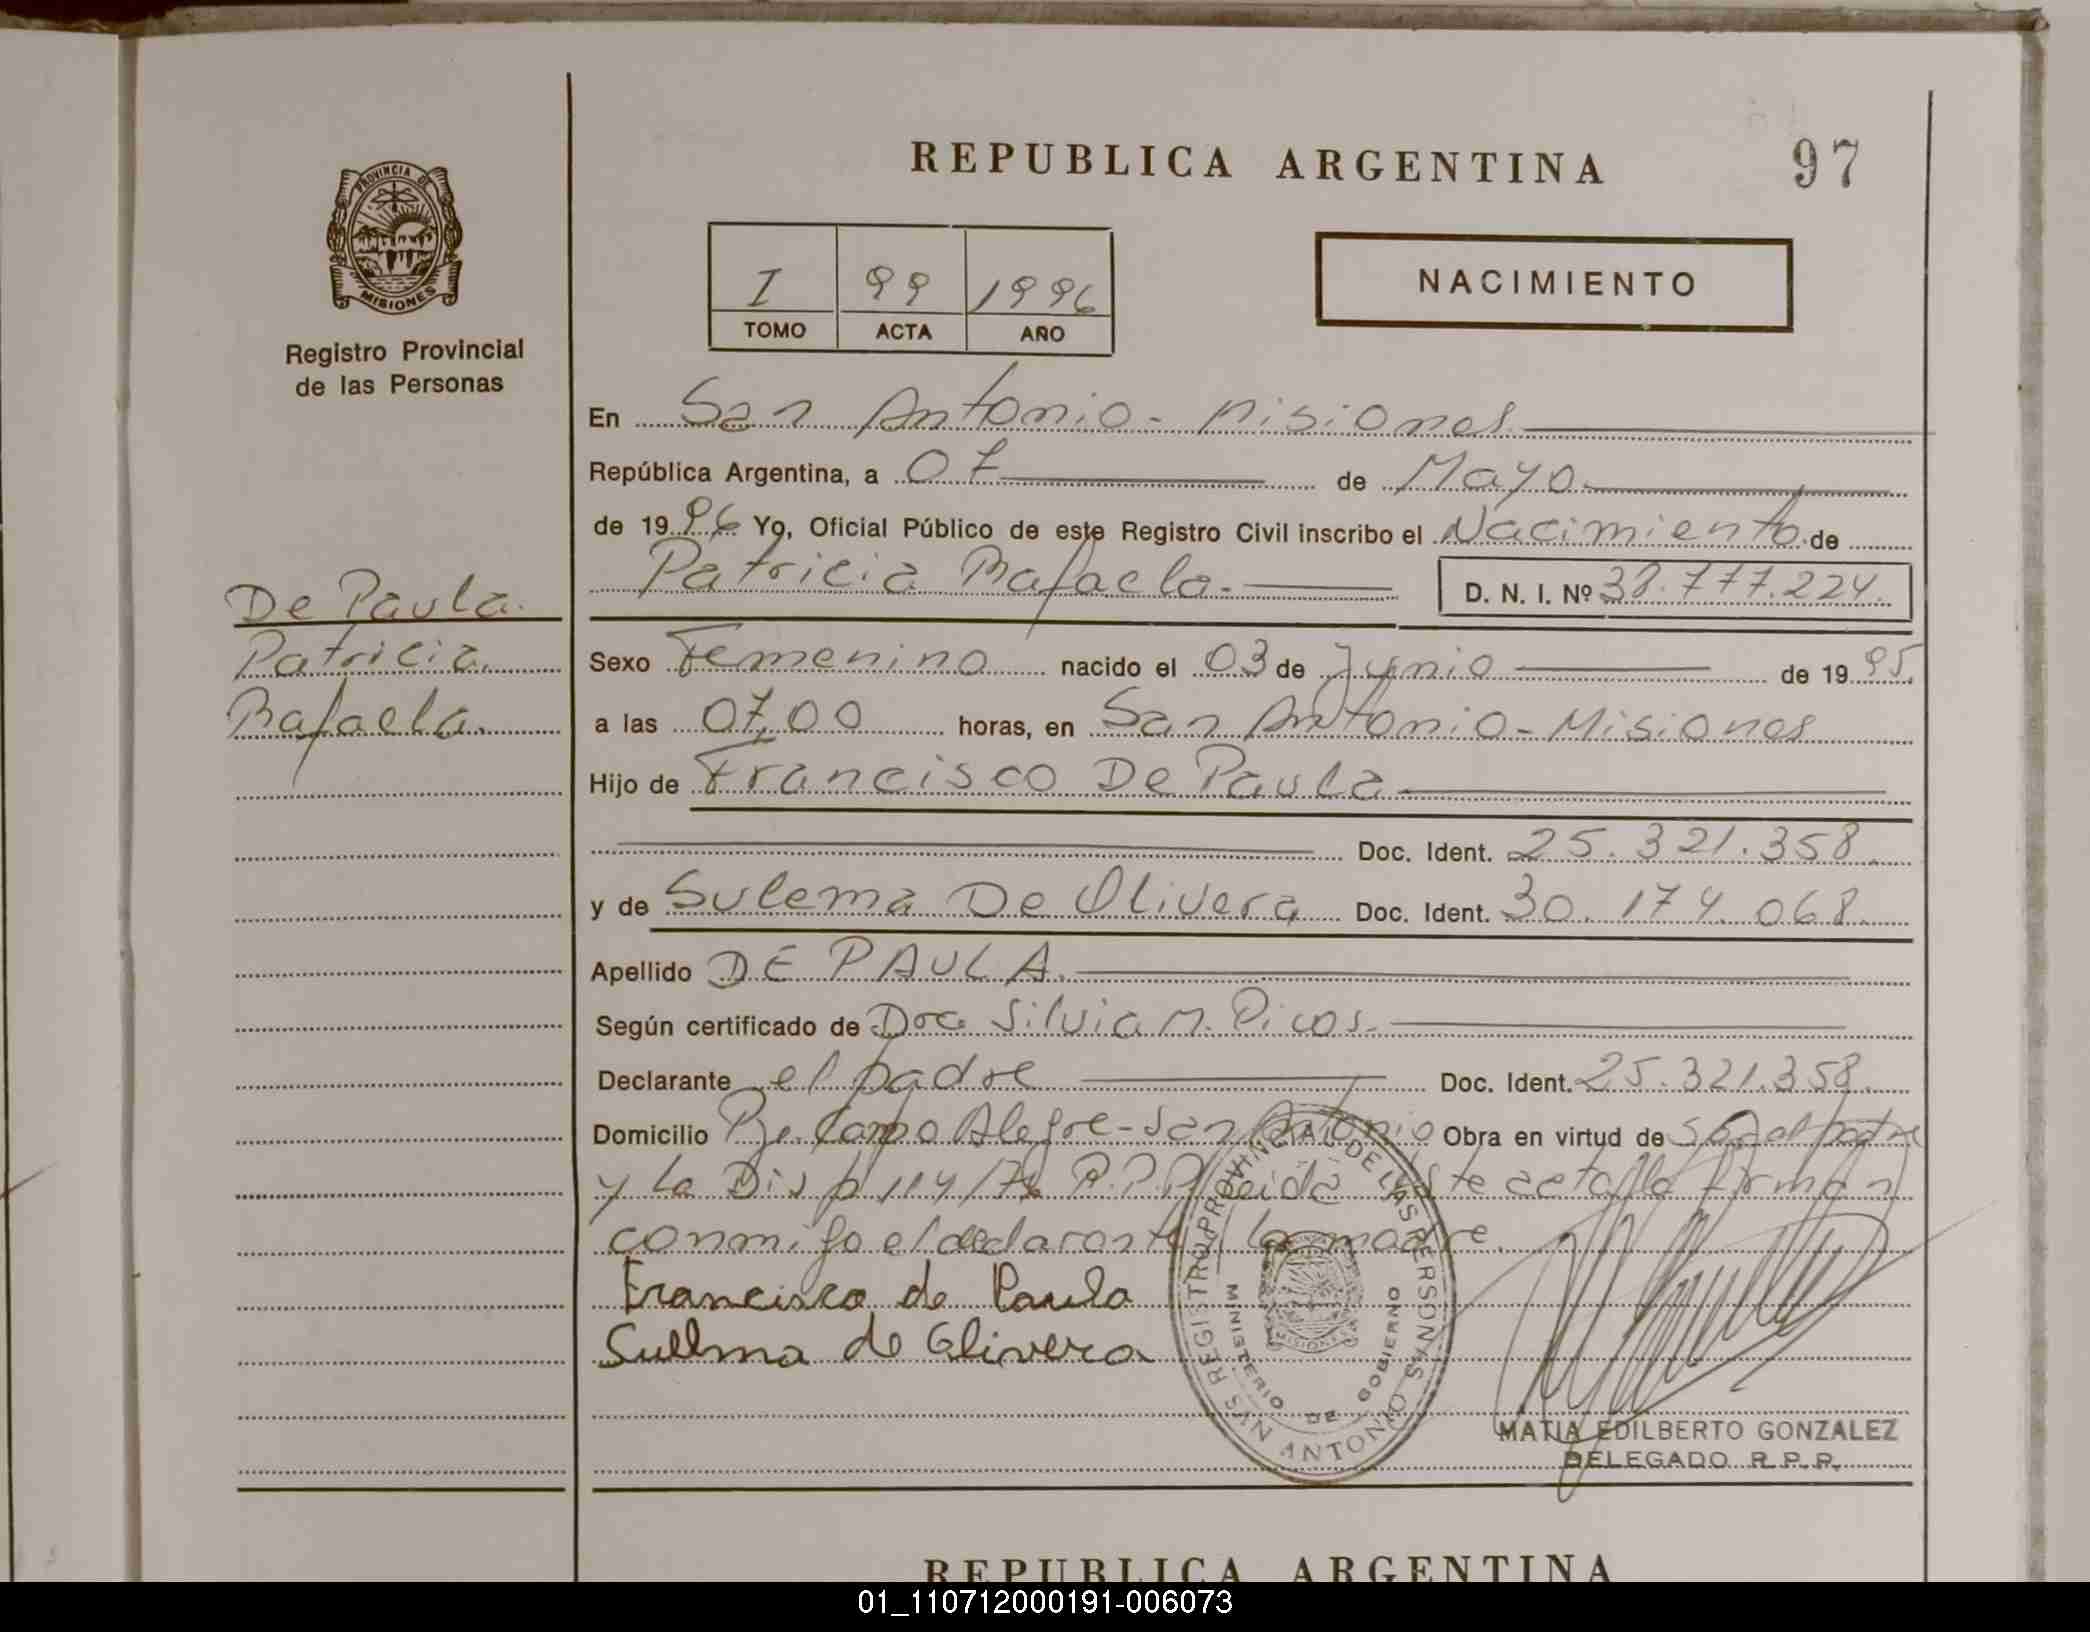 REPUBLICA ARGENTINA
97
PROVINCIA DE
MISIONES
Registro Provincial
de las Personas
I 99 1996
TOMO ACTA AÑO
NACIMIENTO
En San Antonio - Misiones
República Argentina, a 07 de Mayo
de 1996 Yo, Oficial Público de este Registro Civil inscribo el Nacimiento de
Patricia Rafaela.
D. N. I. Nº 38.777.224.
De Paula.
Patricia
Rafaela.
Sexo Femenino nacido el 03 de Junio de 1995.
a las 07,00 horas, en San Antonio - Misiones
Hijo de Francisco De Paula
Doc. Ident. 25.321.358.
y de Sulema De Olivera Doc. Ident. 30.174.068.
Apellido DE PAULA.
Según certificado de Dra Silvia M. Picos.
Declarante el padre Doc. Ident. 25.321.358.
Domicilio Campo Alegre - San Antonio Obra en virtud de padre
y la Disp 114/ R.P.P. Leida este acta firman
conmigo el declarante la madre.
Francisco de Paula
Sullma de Olivera
REGISTRO PROVINCIAL DE LAS PERSONAS
MINISTERIO DE GOBIERNO
MISIONES
SAN ANTONIO
MATIA EDILBERTO GONZALEZ
DELEGADO R.P.P.
REPUBLICA ARGENTINA
01_110712000191-006073